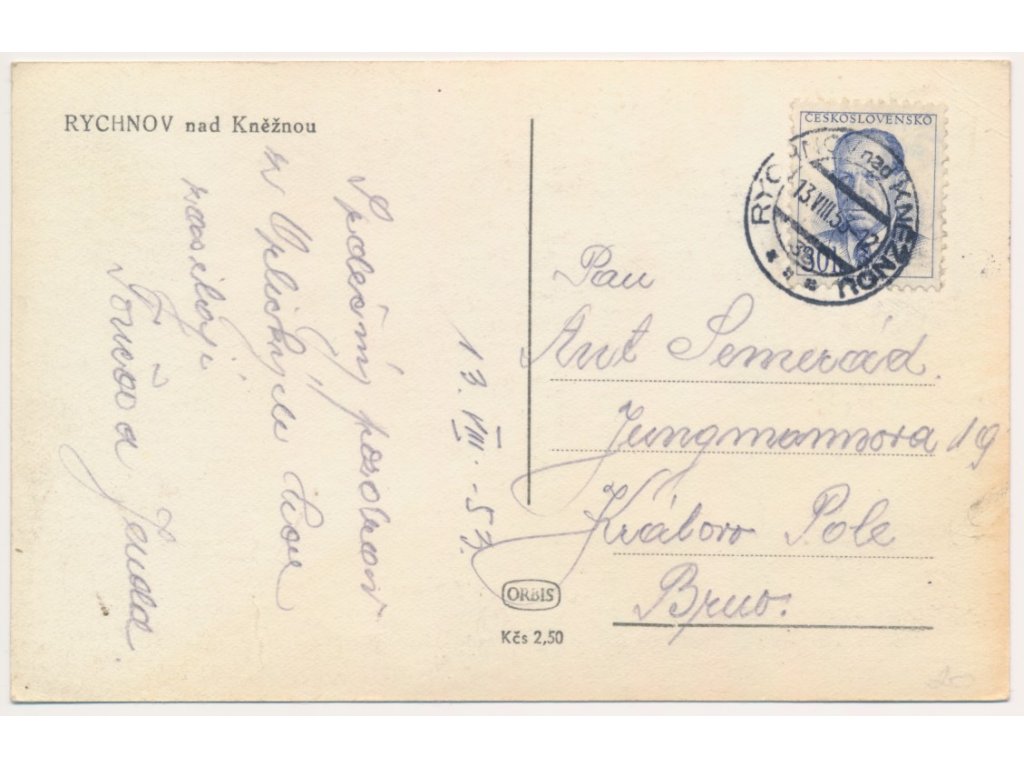 RYCHNOV nad Kněžnou
Srdečný pozdrav
z Orlických hor
zasílají
a Jenda
13. VIII. - 53.
ČESKOSLOVENSKO
30h
RYCHNOV nad KNĚŽNOU
13.VIII.53-12
Pan
Ant Semerád.
Jungmannova 19
Královo Pole
Brno.
ORBIS
Kčs 2,50
20